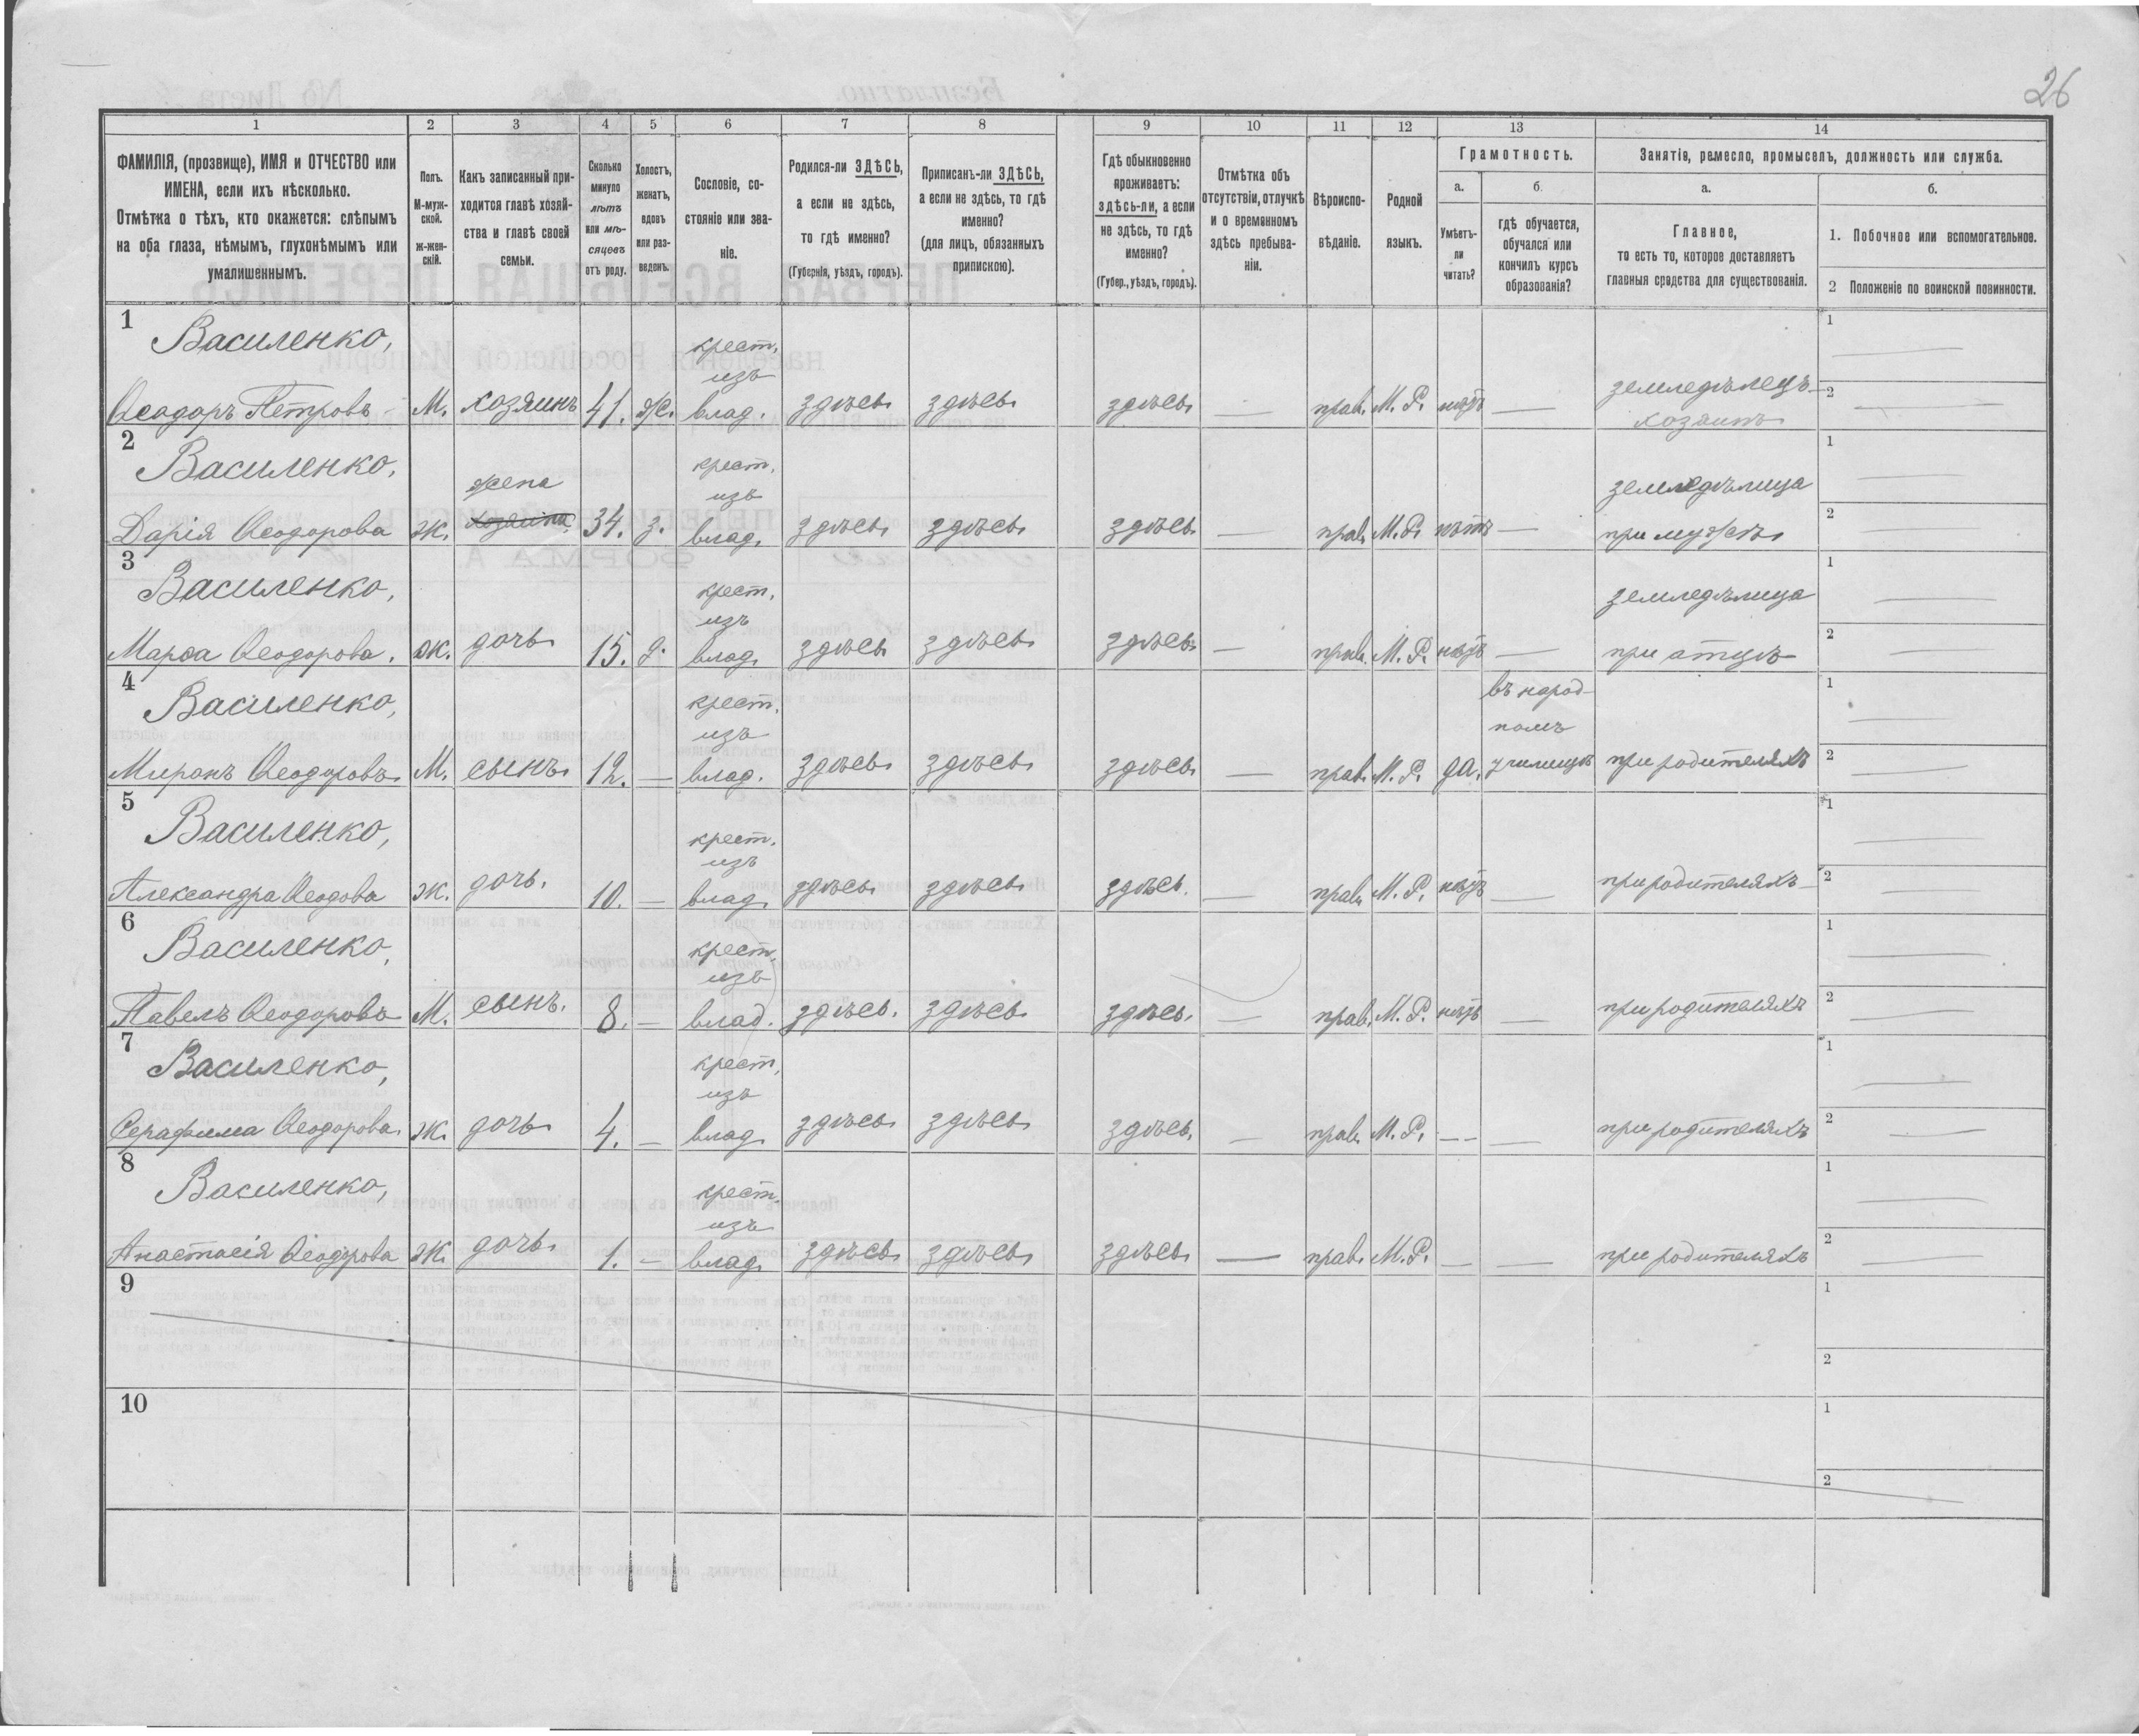 26
1 2 3 4 5 6 7 8 9 10 11 12 13 14
ФАМИЛІЯ, (прозвище), ИМЯ и ОТЧЕСТВО или
ИМЕНА, если ихъ нѣсколько.
Отмѣтка о тѣхъ, кто окажется: слѣпымъ
на оба глаза, нѣмымъ, глухонѣмымъ или
умалишеннымъ.
Полъ.
М-муж-
ской.
Ж-жен-
скій.
Какъ записанный при-
ходится главѣ хозяй-
ства и главѣ своей
семьи.
Сколько
минуло
лѣтъ
или мѣ-
сяцевъ
отъ роду.
Холостъ,
женатъ,
вдовъ
или раз-
веденъ.
Сословіе, со-
стояніе или зва-
ніе.
Родился-ли ЗДѢСЬ,
а если не здѣсь,
то гдѣ именно?
(Губернія, уѣздъ, городъ).
Приписанъ-ли ЗДѢСЬ,
а если не здѣсь, то гдѣ
именно?
(для лицъ, обязанныхъ
припискою).
Гдѣ обыкновенно
проживаетъ:
здѣсь-ли, а если
не здѣсь, то гдѣ
именно?
(Губер., уѣздъ, городъ).
Отмѣтка объ
отсутствіи, отлучкѣ
и о временномъ
здѣсь пребыва-
ніи.
Вѣроиспо-
вѣданіе.
Родной
языкъ.
Грамотность.
а. б.
Умѣетъ-
ли
читать?
гдѣ обучается,
обучался или
кончилъ курсъ
образованія?
Занятіе, ремесло, промыселъ, должность или служба.
а. б.
Главное,
то есть то, которое доставляетъ
главныя средства для существованія.
1. Побочное или вспомогательное.
2 Положеніе по воинской повинности.
1 Василенко, крест. 1
изъ земледѣлецъ
Ѳеодоръ Петровъ М. хозяинъ 41. ж. влад. здѣсь здѣсь здѣсь — прав. М. Р. нѣтъ — хозяинъ 2
2 Василенко, крест. 1
жена изъ земледѣлица
Дарія Ѳеодорова ж. хозяина 34. з. влад. здѣсь здѣсь здѣсь — прав. М. Р. нѣтъ — при мужѣ 2
3 Василенко, крест. 1
изъ земледѣлица
Марѳа Ѳеодорова. ж. дочь 15. д. влад. здѣсь здѣсь здѣсь — прав. М. Р. нѣтъ — при отцѣ 2
4 Василенко, крест. въ народ- 1
изъ номъ
Миронъ Ѳеодоровъ М. сынъ 12. — влад. здѣсь здѣсь здѣсь — прав. М. Р. да, училищѣ при родителяхъ 2
5 Василенко, крест. 1
изъ
Александра Ѳеодова ж. дочь. 10. — влад. здѣсь здѣсь здѣсь. — прав. М. Р. нѣтъ — при родителяхъ 2
6 Василенко, крест. 1
изъ
Павелъ Ѳеодоровъ М. сынъ. 8. — влад. здѣсь. здѣсь здѣсь. — прав. М. Р. нѣтъ — при родителяхъ 2
7 Василенко, крест. 1
изъ
Серафима Ѳеодорова. ж. дочь 4. — влад. здѣсь здѣсь здѣсь. — прав. М. Р. — — при родителяхъ 2
8 Василенко, крест. 1
изъ
Анастасія Ѳеодорова ж. дочь 1. — влад. здѣсь здѣсь здѣсь — прав. М. Р. — — при родителяхъ 2
9 1
2
10 1
2